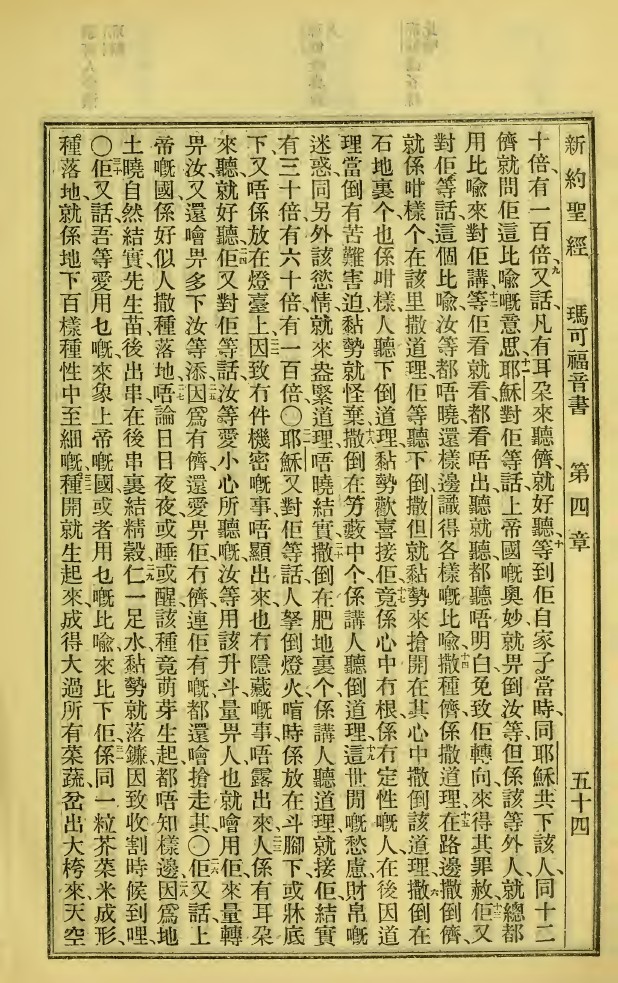 新約聖經 瑪可福音書 第四章 五十四
十倍、有一百倍、九又話、凡有耳朵來聽儕、就好聽、十等到佢自家子當時、同耶穌共下該人、同十二
儕就問佢這比喻嘅意思、十一耶穌對佢等話、上帝國嘅奧妙、就畀倒汝等、但係該等外人、就總都
用比喻來對佢講、十二等佢看就看、都看唔出、聽就聽、都聽唔明白、免致佢轉向來、得其罪赦、十三佢又
對佢等話、這個比喻、汝等都唔曉、還樣邊識得各樣嘅比喻、十四撒種儕、係撒道理、十五在路邊撒倒儕、
就係咁樣个、在該里撒道理、佢等聽下倒、撒但就黏勢來、搶開在其心中撒倒該道理、十六撒倒在
石地裏个、也係咁樣、人聽下倒道理、黏勢歡喜接佢、十七竟係心中冇根、係冇定性嘅人、在後因道
理當倒有苦難害迫、黏勢就怪棄、十八撒倒在竻藪中个、係講人聽倒道理、十九這世間嘅愁慮、財帛嘅
迷惑、同另外該慾情、就來盎緊道理、唔曉結實、二十撒倒在肥地裏个、係講人聽道理就接佢結實、
有三十倍、有六十倍、有一百倍、〇二一耶穌又對佢等話、人拏倒燈火喧時、係放在斗腳下、或牀底
下、又唔係放在燈臺上、二二因致冇件機密嘅事、唔顯出來、也冇隱藏嘅事、唔露出來、二三人係有耳朵
來聽、就好聽、二四佢又對佢等話、汝等愛小心所聽嘅、汝等用該升斗量畀人、也就噲用佢來量轉
畀汝、又還噲畀多下汝等添、二五因爲有儕、還愛畀佢、冇儕、連佢有嘅、都還噲搶走其、〇二六佢又話、上
帝嘅國、係好似人撒種落地、二七唔論日日夜夜、或睡或醒、該種竟萌芽生起、都唔知樣邊、二八因爲地
土曉自然結實、先生苗、後出串、在後串裏結精穀仁、二九一足水、黏勢就落鐮、因致收割時候到哩、
〇三十佢又話、吾等愛用乜嘅來象上帝嘅國、或者用乜嘅比喻來比下佢、三一係同一粒芥菜米、成形、
種落地、就係地下百樣種性中至細嘅、三二種開就生起來、成得大過所有菜蔬、岔出大桍來、天空